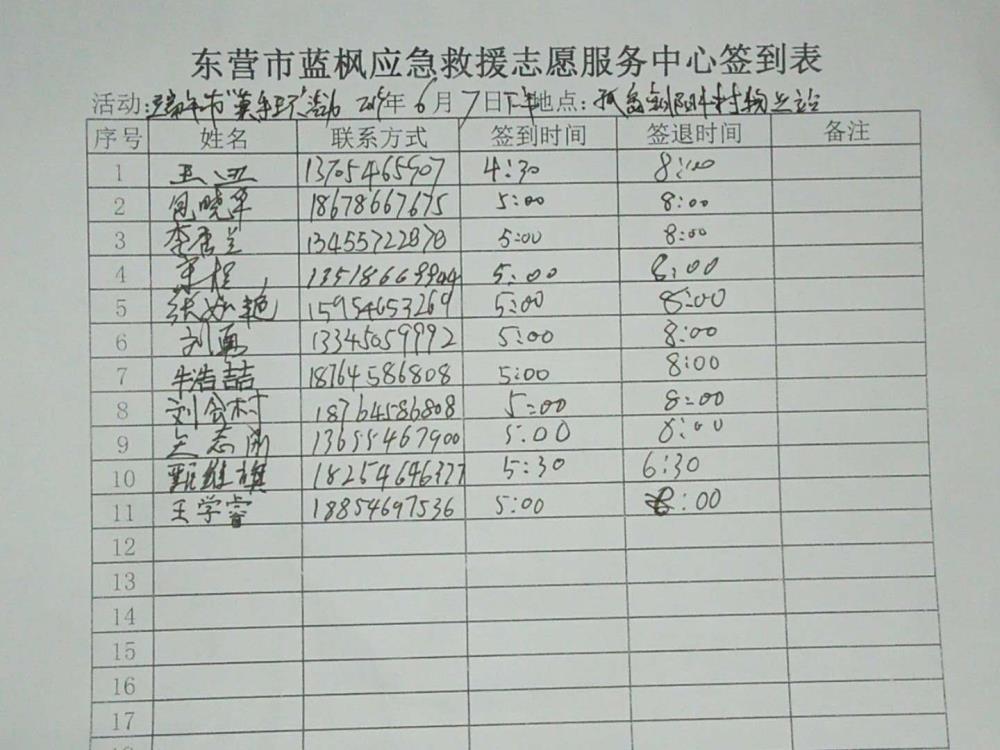 东营市蓝枫应急救援志愿服务中心签到表
活动: 年6月7日下午地点:
序号 姓名 联系方式 签到时间 签退时间 备注
1 13705465907 4:30 8:00
2 18678667675 5:00 8:00
3 13455722878 5:00 8:00
4 13518669944 5:00 8:00
5 15954653269 5:00 8:00
6 刘勇 13345059992 5:00 8:00
7 朱浩喆 18764586808 5:00 8:00
8 刘会村 18764586808 5:00 8:00
9 13655467900 5:00 8:00
10 甄维旗 18254646377 5:30 6:30
11 王学睿 18854697536 5:00 8:00
12
13
14
15
16
17